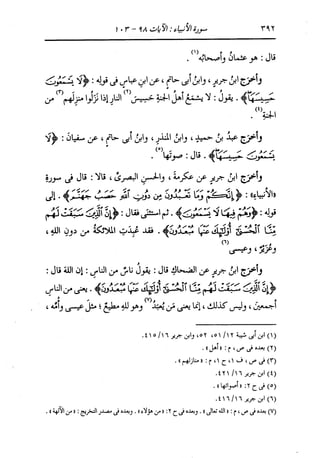 ٣٩٢ سورة الأنبياء : الآيات ٩٨ - ١٠٣
قال : هو عثمان وأصحابه(١) .
وأخرج ابن جرير ، وابن أبي حاتم ، عن ابن عباس في قوله : ﴿لَا يَسْمَعُونَ
حَسِيسَهَا﴾ . يقول : لا يسمع أهل الجنة حسيس(٢) النار إذا نزلوا منزلهم(٣) من
الجنة(٤) .
وأخرج عبد بن حميد ، وابن المنذر ، وابن أبي حاتم ، عن سفيان : ﴿لَا
يَسْمَعُونَ حَسِيسَهَا﴾ . قال : صوتها(٥) .
وأخرج ابن جرير عن عكرمة ، والحسن البصرى ، قالا : قال في سورة
«الأنبياء» : ﴿إِنَّكُمْ وَمَا تَعْبُدُونَ مِن دُونِ اللَّهِ حَصَبُ جَهَنَّمَ﴾ . إلى
قوله : ﴿وَهُمْ فِيهَا لَا يَسْمَعُونَ﴾ . ثم استثنى فقال : ﴿إِنَّ الَّذِينَ سَبَقَتْ لَهُم
مِّنَّا الْحُسْنَى أُولَئِكَ عَنْهَا مُبْعَدُونَ﴾ . فقد عُبِدت الملائكة من دون الله ،
وعُزَيرٌ ، وعيسى(٦) .
وأخرج ابن جرير عن الضحاك قال : يقول ناس من الناس : إن الله قال :
﴿إِنَّ الَّذِينَ سَبَقَتْ لَهُم مِّنَّا الْحُسْنَى أُولَئِكَ عَنْهَا مُبْعَدُونَ﴾ . يعنى من الناس
أجمعين ، وليس كذلك ، إنما يعنى مَن يُعبَدُ(٧) وهو لله مطيع ؛ مثل عيسى وأمه ،
(١) ابن أبي شيبة ١٢/ ٥١، ٥٢، وابن جرير ١٦/ ٤١٥.
(٢) بعده في ص ، م : «أهل» .
(٣) في ص ، ف ١، ح ١، م : «منازلهم» .
(٤) ابن جرير ١٦/ ٤٢١.
(٥) في ح ٢ : «أصواتها» .
(٦) ابن جرير ١٦/ ٤١٦.
(٧) بعده في ص ، م : «الله تعالى» . وبعده في ح ٢ : «من هؤلاء» . وبعده في مصدر التخريج : «من الآلهة» .